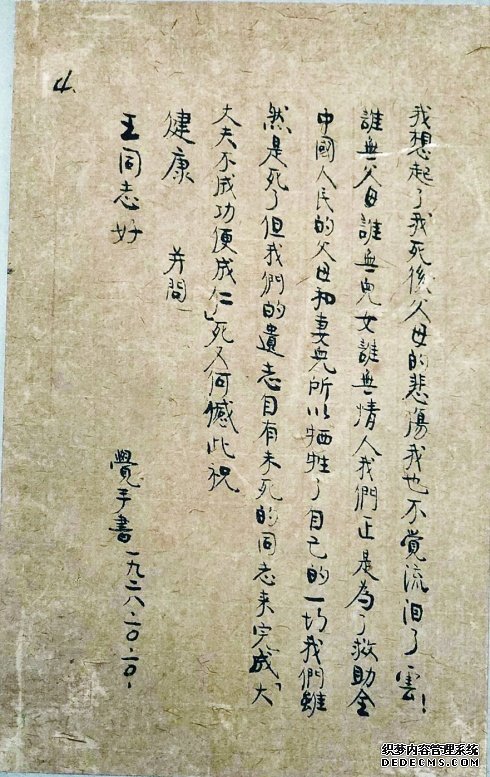 4.
我想起了我死後父母的悲傷我也不覺流泪了雲！
誰無父母誰無兒女誰無情人我們正是為了救助全
中國人民的父母和妻兒所以牺牲了自己的一切我們雖
然是死了但我們的遺志自有未死的同志来完成「大
丈夫不成功便成仁」死又何憾此祝
健康 并問
王同志好
覺手書一九二八·一〇·一〇·
织梦内容管理系统
DEDECMS.COM